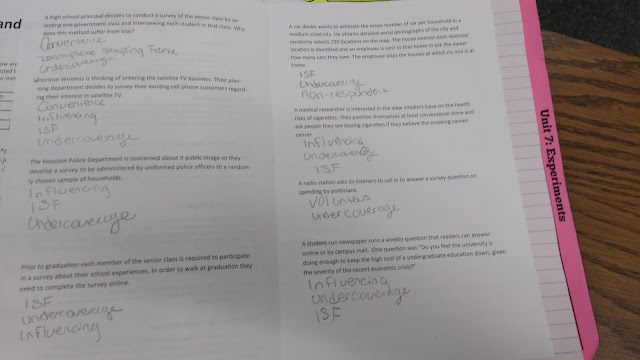 and
A high school principal decides to conduct a survey of the senior class by se-
lecting one government class and interviewing each student in that class. Why
does this method suffer from bias?
Convenience
incomplete sampling frame
undercoverage
Verizon Wireless is thinking of entering the satellite TV business. Their plan-
ning department decides to survey their existing cell phone customers regard-
ing their interest in satellite TV.
Convenience
Influencing
ISF
undercoverage
The Houston Police Department is concerned about it public image so they
develop a survey to be administered by uniformed police officers to a random-
ly chosen sample of households.
Influencing
ISF
Undercoverage
Prior to graduation each member of the senior class is required to participate
in a survey about their school experiences. In order to walk at graduation they
need to complete the survey online.
ISF
undercoverage
Influencing
A car dealer wants to estimate the mean number of car per household in a
medium sized city. He obtains detailed aerial photographs of the city and
randomly selects 250 locations on the map. The house nearest each selected
location is identified and an employee is sent to that home to ask the owner
how many cars they own. The employee skips the houses at which no one is at
home.
ISF
Undercoverage
non-respondent
A medical researcher is interested in the view smokers have on the health
risks of cigarettes. They position themselves at local convenience store and
ask people they see buying cigarettes if they believe the smoking causes
cancer.
Influencing
undercoverage
ISF
A radio station asks its listeners to call in to answer a survey question on
spending by politicians.
undercoverage
A student run newspaper runs a weekly question that readers can answer
online or by campus mail. One question was "Do you feel the university is
doing enough to keep the high cost of a undergraduate education down, given
the severity of the recent economic crisis?"
Influencing
undercoverage
ISF
Unit 7: Experiments